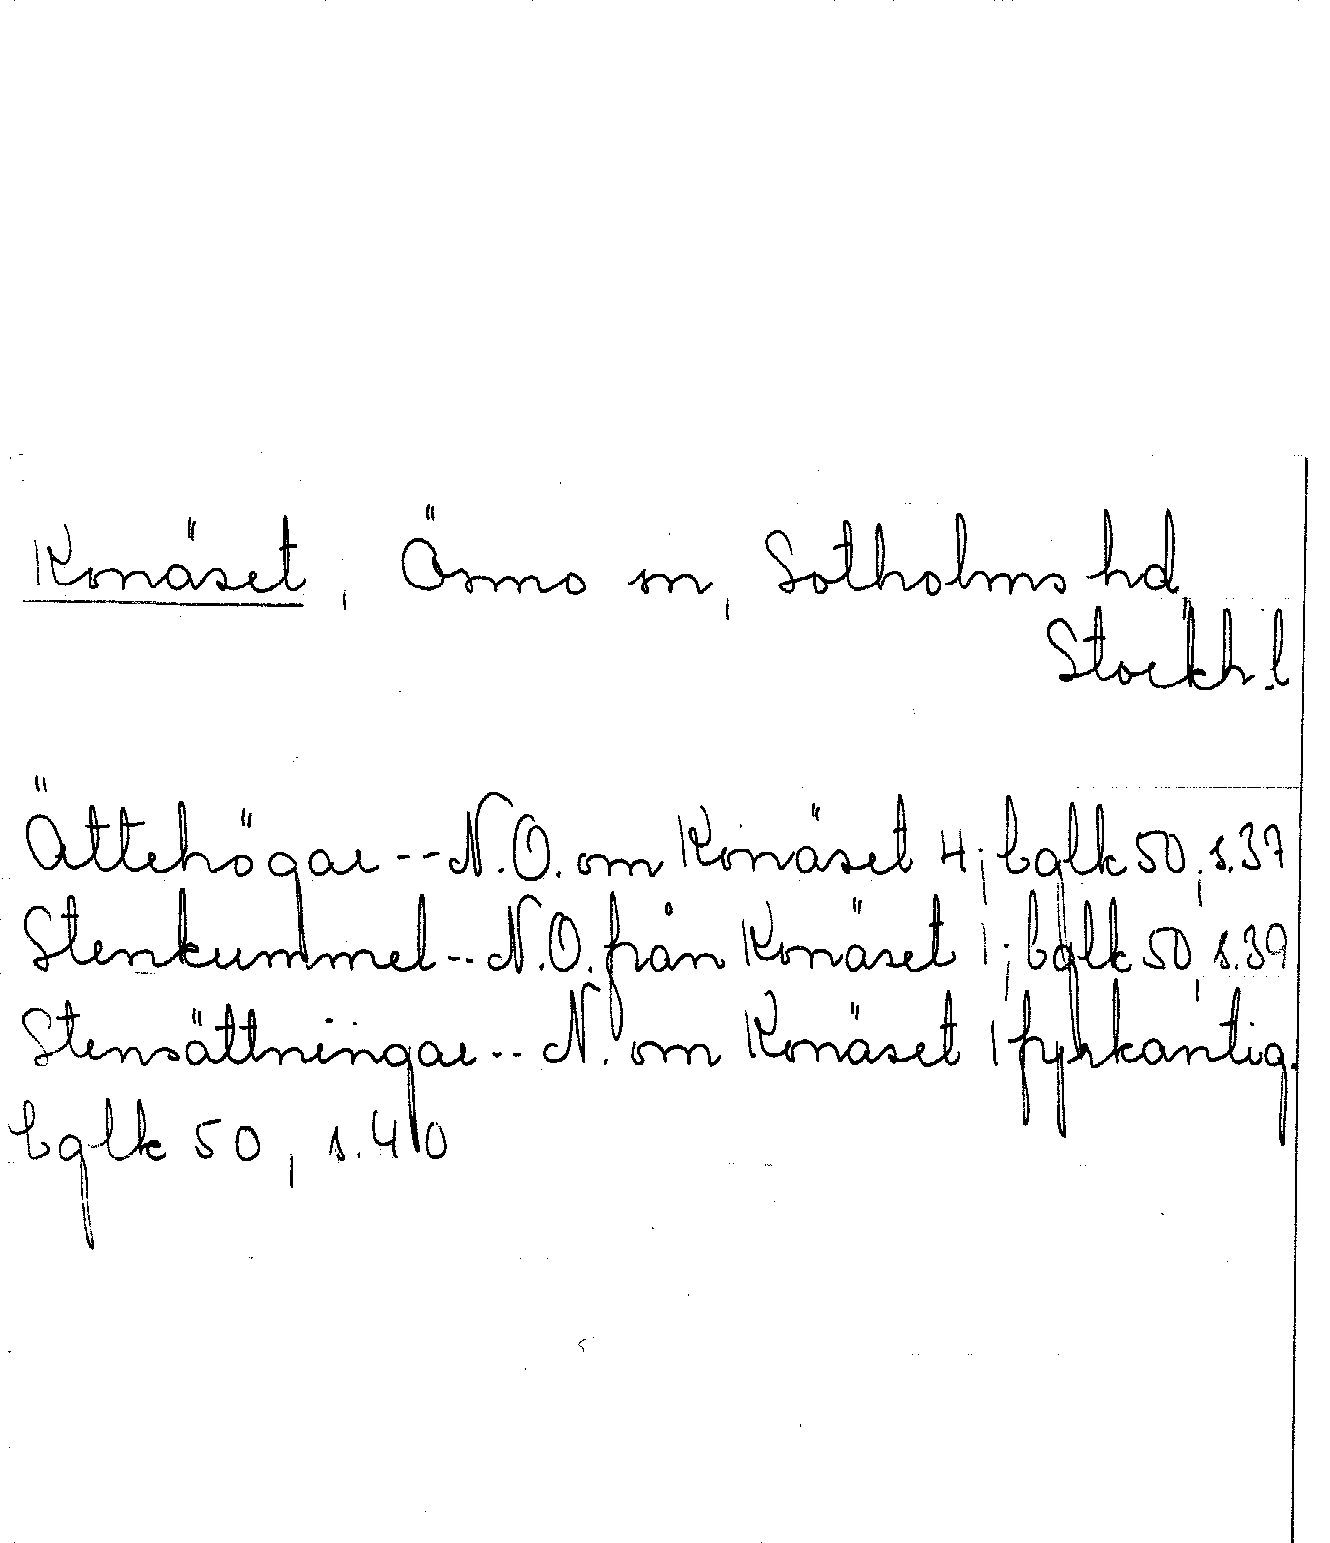 Konäset, Ösmo sn, Sotholms hd,
Stockh.l
Ättehögar -- N.O. om Konäset 4; bglk 50, s.37
Stenkummel -- N.O. från Konäset 1; bglk 50, s.39
Stensättningar -- N. om Konäset 1 fyrkantig.
bglk 50, s.40